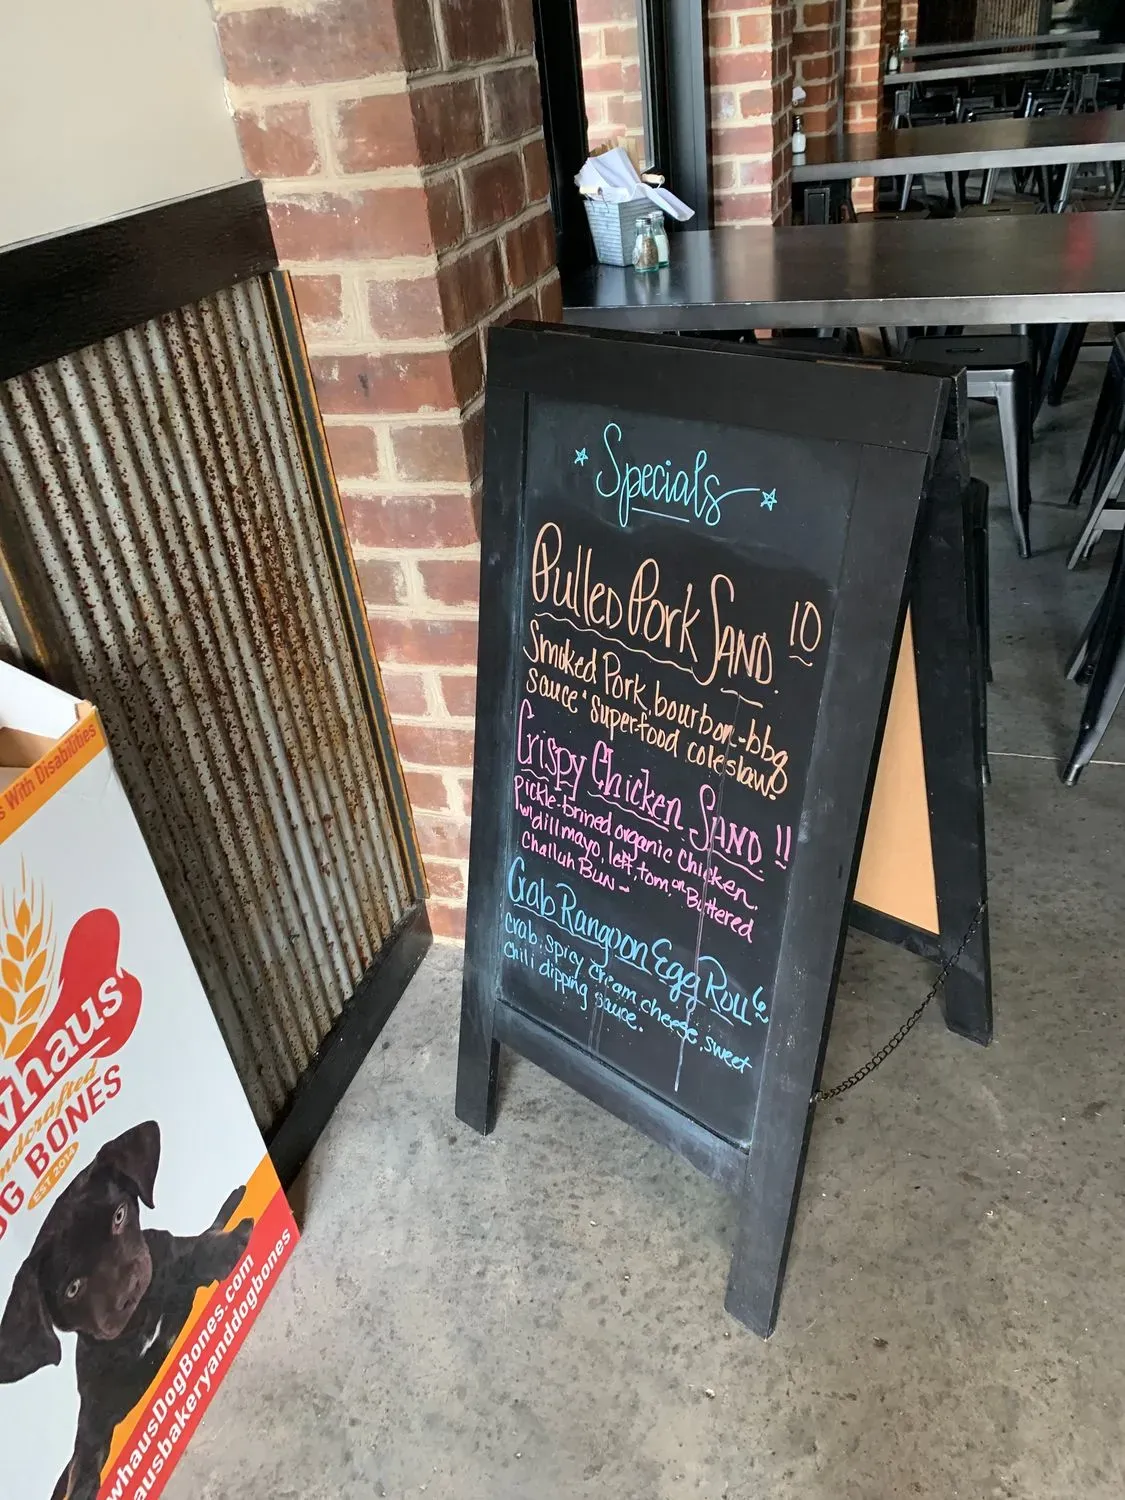 Specials
Pulled Pork Sand. 10
Smoked Pork, bourbon-bbq
sauce & super-food coleslaw.
Crispy Chicken Sand. 11
Pickle-brined organic chicken,
w/ dill mayo, lett, tom, on Buttered
Challah Bun -
Crab Rangoon Egg Roll 6
crab, spicy cream cheese, sweet
chili dipping sauce.
s With Disabilities
whaus
ndcrafted
OG BONES
EST 2014
whausDogBones.com
ausbakeryanddogbones